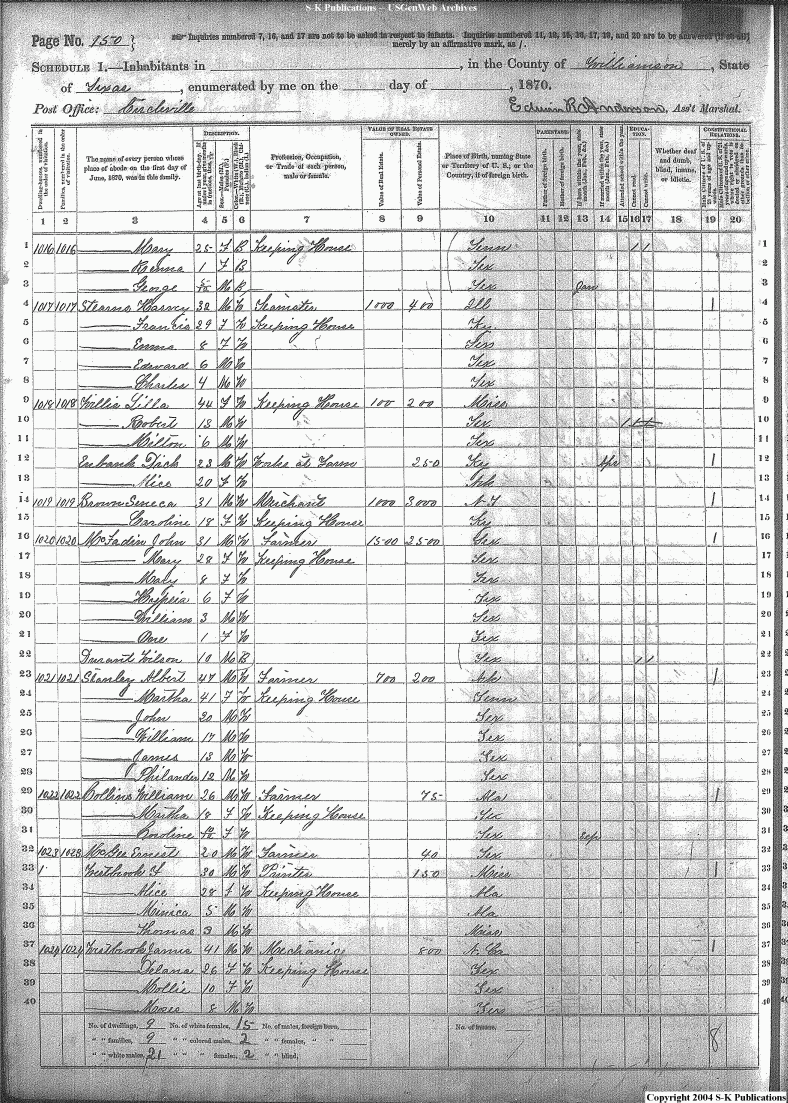 S-K Publications – USGenWeb Archives
Page No. 150 }
Inquiries numbered 7, 16, and 17 are not to be asked in respect to infants. Inquiries numbered 11, 12, 15, 16, 17, 19, and 20 are to be answered (if at all)
merely by an affirmative mark, as /.
SCHEDULE 1.—Inhabitants in , in the County of Williamson, State
of Texas, enumerated by me on the day of , 1870.
Post Office: Circleville
Edwin R. Anderson, Ass't Marshal.
DESCRIPTION. VALUE OF REAL ESTATE OWNED. PARENTAGE. EDUCATION. CONSTITUTIONAL RELATIONS.
The name of every person whose place of abode on the first day of June, 1870, was in this family.
Profession, Occupation, or Trade of each person, male or female.
Value of Real Estate.
Value of Personal Estate.
Place of Birth, naming State or Territory of U. S.; or the Country, if of foreign birth.
Father of foreign birth.
Mother of foreign birth.
Attended school within the year.
Cannot read.
Cannot write.
Whether deaf and dumb, blind, insane, or idiotic.
1 2 3 4 5 6 7 8 9 10 11 12 13 14 15 16 17 18 19 20
1 1016 1016 —— Mary 25 F B Keeping House Tenn 1 1 1
2 —— 1 F B Tex 2
3 —— George M B Tex Jan 3
4 1017 1017 Stearns Harvey 32 M W Teamster 1000 400 Ill 1 4
5 —— Francis 29 F W Keeping House Ky 5
6 —— Emma 8 F W Tex 6
7 —— Edward 6 M W Tex 7
8 —— Charles 4 M W Tex 8
9 1018 1018 Willis Lilla 44 F W Keeping House 100 200 Miss 9
10 —— Robert 13 M W Tex 1 10
11 —— Milton 6 M W Tex 11
12 Eubank Dick 23 M W Works at Farm 250 Ky Apr 1 12
13 —— Alice 20 F W Ark 13
14 1019 1019 Brown Seneca 31 M W Merchant 1000 3000 N-Y 1 14
15 —— Caroline 18 F W Keeping House Ky 15
16 1020 1020 McFadin John 31 M W Farmer 1500 2500 Tex 1 16
17 —— Mary 28 F W Keeping House Tex 17
18 —— Maly 8 F W Tex 18
19 —— 6 F W Tex 19
20 —— William 3 M W Tex 20
21 —— One 1 F W Tex 21
22 Durant Wilson 10 M B Tex 1 1 22
23 1021 1021 Stanley Albert 47 M W Farmer 700 200 Ark 1 23
24 —— Martha 41 F W Keeping House Tenn 24
25 —— John 20 M W Tex 25
26 —— William 17 M W Tex 26
27 —— James 13 M W Tex 27
28 —— Philander 12 M W Tex 28
29 1022 1022 Collins William 26 M W Farmer 75 Ala 1 29
30 —— Martha 18 F W Keeping House Tex 30
31 —— Caroline F W Tex Sep 31
32 1023 1023 McGee Ernest 20 M W Farmer 40 Tex 32
33 1 Westbrook F 30 M W Printer 150 Miss 1 33
34 —— Alice 28 F W Keeping House Ala 34
35 —— Minica 5 M W Ala 35
36 —— Thomas 3 M W Miss 36
37 1024 1024 Westbrook James 41 M W Mechanic 800 N. Ca 1 37
38 —— Delana 26 F W Keeping House Tex 38
39 —— Mollie 10 F W Tex 39
40 —— Moses 8 M W Tex 40
No. of dwellings, 9 No. of white females, 15 No. of males, foreign born, No. of insane, 8
" " families, 9 " " colored males, 2 " " females, " "
" " white males, 21 " " " females, 2 " " blind,
Copyright 2004 S-K Publications